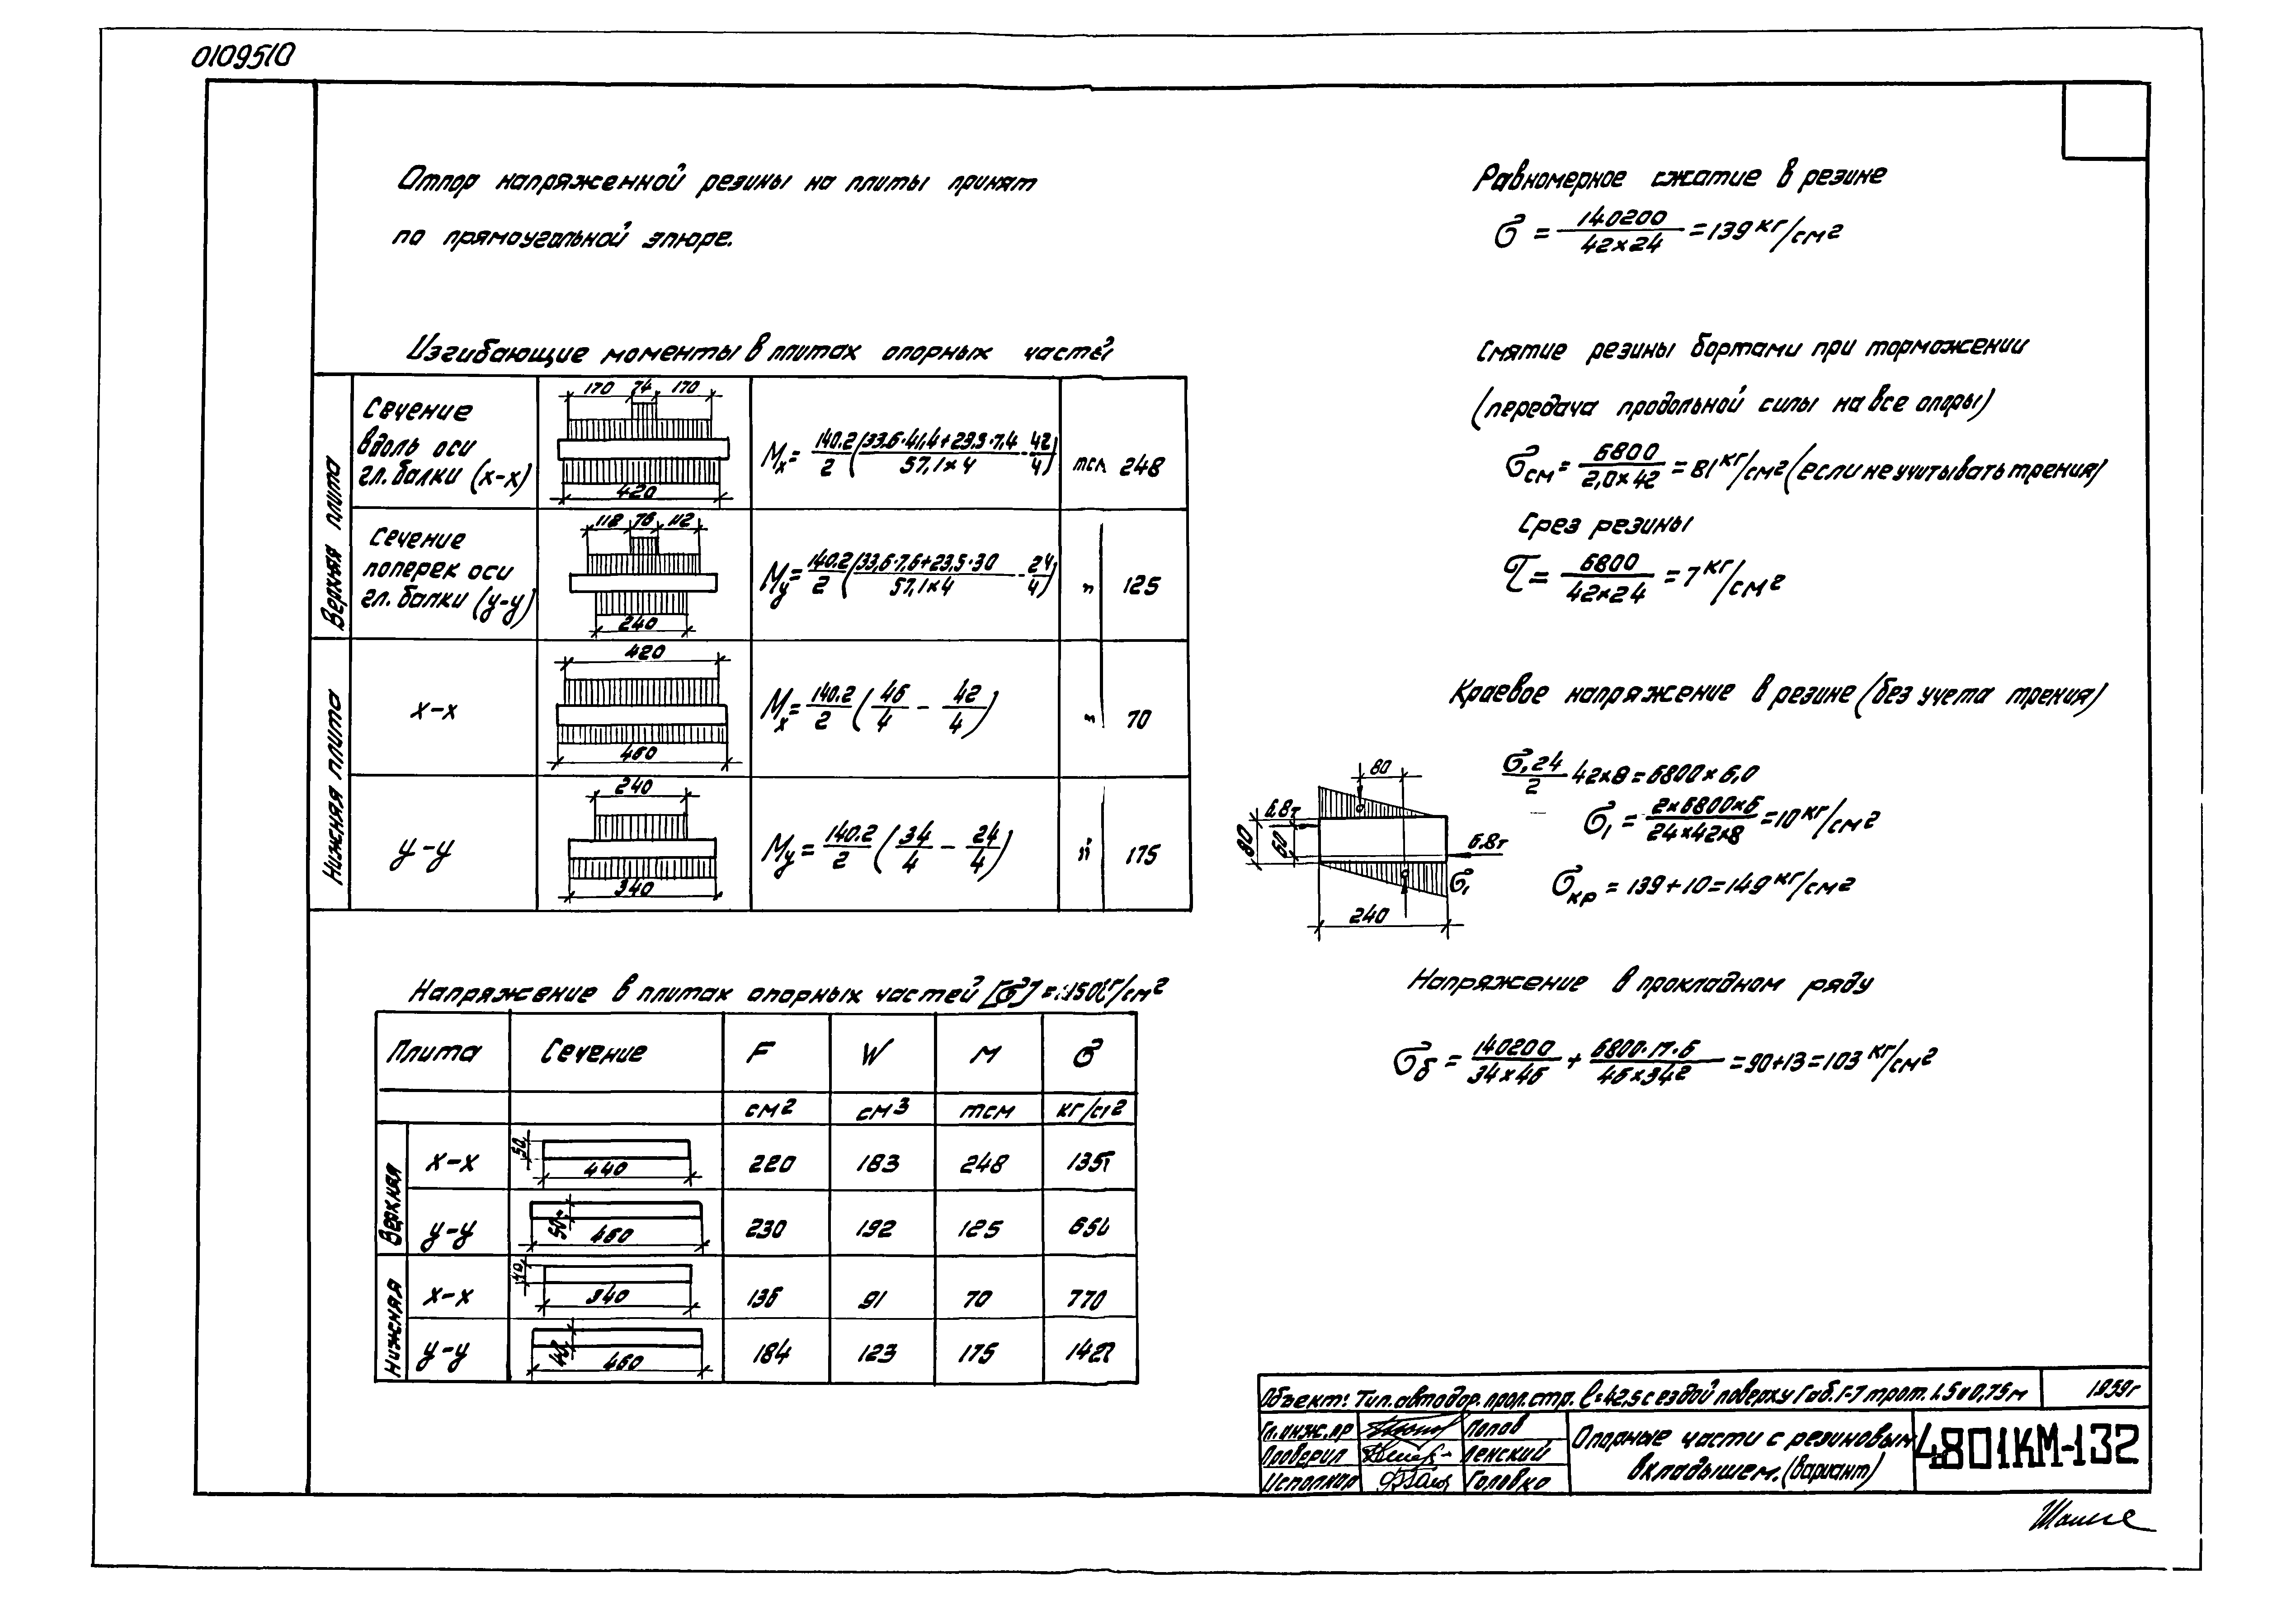 0109510
Отпор напряженной резины на плиты принят
по прямоугольной эпюре.
Изгибающие моменты в плитах опорных частей
Верхняя плита
Сечение
вдоль оси
гл. балки (x-x)
170 74 170
420
Mx = 140.2/2 (33,6·41,4+23,5·7,4 / 57,1×4 - 42/4) тсм 248
Сечение
поперек оси
гл. балки (y-y)
118 76 112
240
My = 140.2/2 (33,6·7,6+23,5·30 / 57,1×4 - 24/4) " 125
Нижняя плита
x-x
420
460
Mx = 140.2/2 (46/4 - 42/4) " 70
y-y
240
340
My = 140.2/2 (34/4 - 24/4) " 175
Напряжение в плитах опорных частей [σ] =
Плита Сечение F W M σ
см2 см3 тсм кг/см2
Верхняя
x-x 50 440 220 183 248 1355
y-y 50 460 230 192 125 650
Нижняя
x-x 40 340 136 91 70 770
y-y 40 460 184 123 175 1422
Равномерное сжатие в резине
σ = 140200 / 42×24 = 139 кг/см2
Смятие резины бортами при торможении
(передача продольной силы на все опоры)
σсм = 6800 / 2,0×42 = 81 кг/см2 (если не учитывать трения)
Срез резины
τ = 6800 / 42×24 = 7 кг/см2
Краевое напряжение в резине (без учета трения)
σ1 24 / 2 42×8 = 6800×6,0
σ1 = 2×6800×6 / 24×42×8 = 10 кг/см2
σкр = 139+10 = 149 кг/см2
80
6.8т
80
60
6.8т
σ1
240
Напряжение в прокладном ряду
σб = 140200 / 34×46 + 6800·17·6 / 46×342 = 90+13 = 103 кг/см2
Объект: Тип. автодор. прол. стр. ℓ=42,5 с ездой поверху Габ. Г-7 трот. 1.5 и 0,75 м 1959г
Гл. инж. пр Попов
Проверил Ленский
Исполнил Головко
Опорные части с резиновым
вкладышем. (вариант)
4801КМ-132